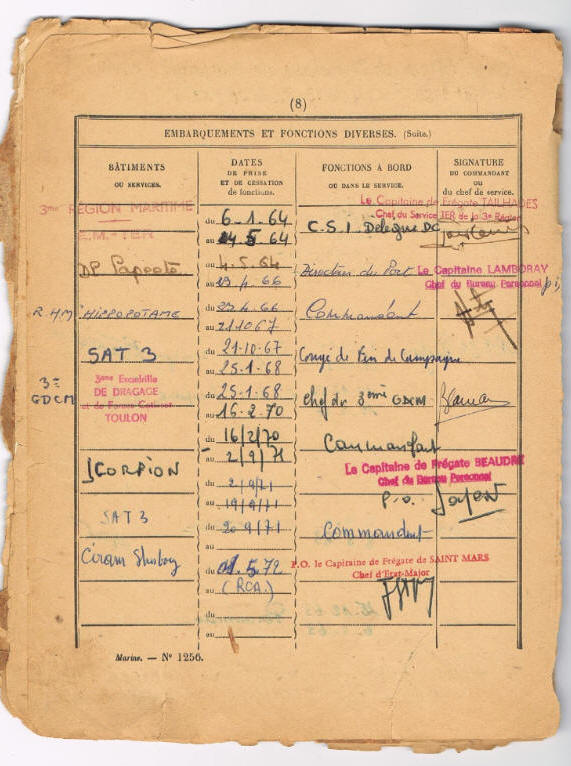 (8)
EMBARQUEMENTS ET FONCTIONS DIVERSES. (Suite.)
BÂTIMENTS
OU SERVICES.
DATES
DE PRISE
ET DE CESSATION
de fonctions.
FONCTIONS À BORD
OU DANS LE SERVICE.
SIGNATURE
DU COMMANDANT
OU
du chef de service.
3me RÉGION MARITIME
E.M.-TER
du 6.1.64
au 4 5 64
C.S.I. Délégué DC
Le Capitaine de Frégate TAILHADES
Chef du Service TER de la 3e Région
DP Papeete
du 4.5.64
au 23 4 66
Directeur du Port
Le Capitaine LAMBORAY
Chef du Bureau Personnel
R.H.M HIPPOPOTAME
du 23 4.66
au 21 10 67
Commandant
SAT 3
du 21-10-67
au 25-1-68
Congé de Fin de Campagne
3e GDCM
3ème Escadrille
DE DRAGAGE
TOULON
du 25-1-68
au 16-2-70
Chef du 3ème GDCM
SCORPION
du 16/2/70
au 2/9/71
Commandant
Le Capitaine de Frégate BEAUDRE
Chef du Bureau Personnel
P.O.
SAT 3
du 2/9/71
au 19/9/71
du 20 9/71
au
Commandant
du 5.72
au (RCA)
P.O. le Capitaine de Frégate de SAINT MARS
Chef d'Etat-Major
du
au
Marine. — N° 1256.